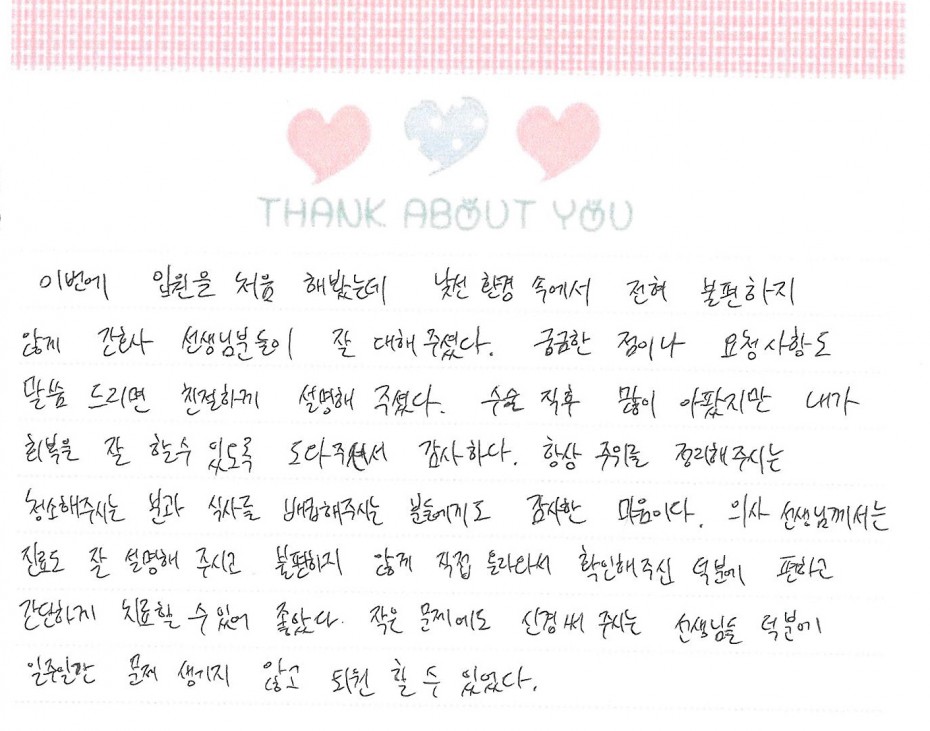 THANK ABOUT YOU
이번에 입원을 처음 해봤는데 낯선 환경 속에서 전혀 불편하지
않게 간호사 선생님분들이 잘 대해주셨다. 궁금한 점이나 요청사항도
말씀 드리면 친절하게 설명해 주셨다. 수술 직후 많이 아팠지만 내가
회복을 잘 할수 있도록 도와주셔서 감사하다. 항상 주위를 정리해주시는
청소해주시는 분과 식사를 배급해주시는 분들에게도 감사한 마음이다. 의사 선생님께서는
진료도 잘 설명해 주시고 불편하지 않게 직접 올라와서 확인해주신 덕분에 편하고
간단하게 치료할 수 있어 좋았다. 작은 문제에도 신경써 주시는 선생님들 덕분에
일주일간 문제 생기지 않고 퇴원 할 수 있었다.